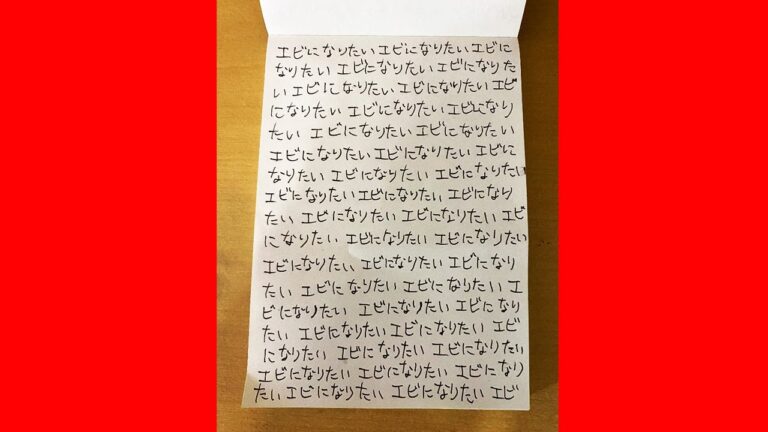 エビになりたいエビになりたいエビに
なりたいエビになりたいエビになりた
いエビになりたいエビになりたいエビ
になりたいエビになりたいエビになり
たいエビになりたいエビになりたい
エビになりたいエビになりたいエビに
なりたいエビになりたいエビになりたい
エビになりたいエビになりたいエビになり
たいエビになりたいエビになりたいエビ
になりたいエビになりたいエビになりたい
エビになりたいエビになりたいエビになり
たいエビになりたいエビになりたいエ
ビになりたいエビになりたいエビになり
たいエビになりたいエビになりたいエビ
になりたいエビになりたいエビになりたい
エビになりたいエビになりたいエビになり
たいエビになりたいエビになりたいエビ